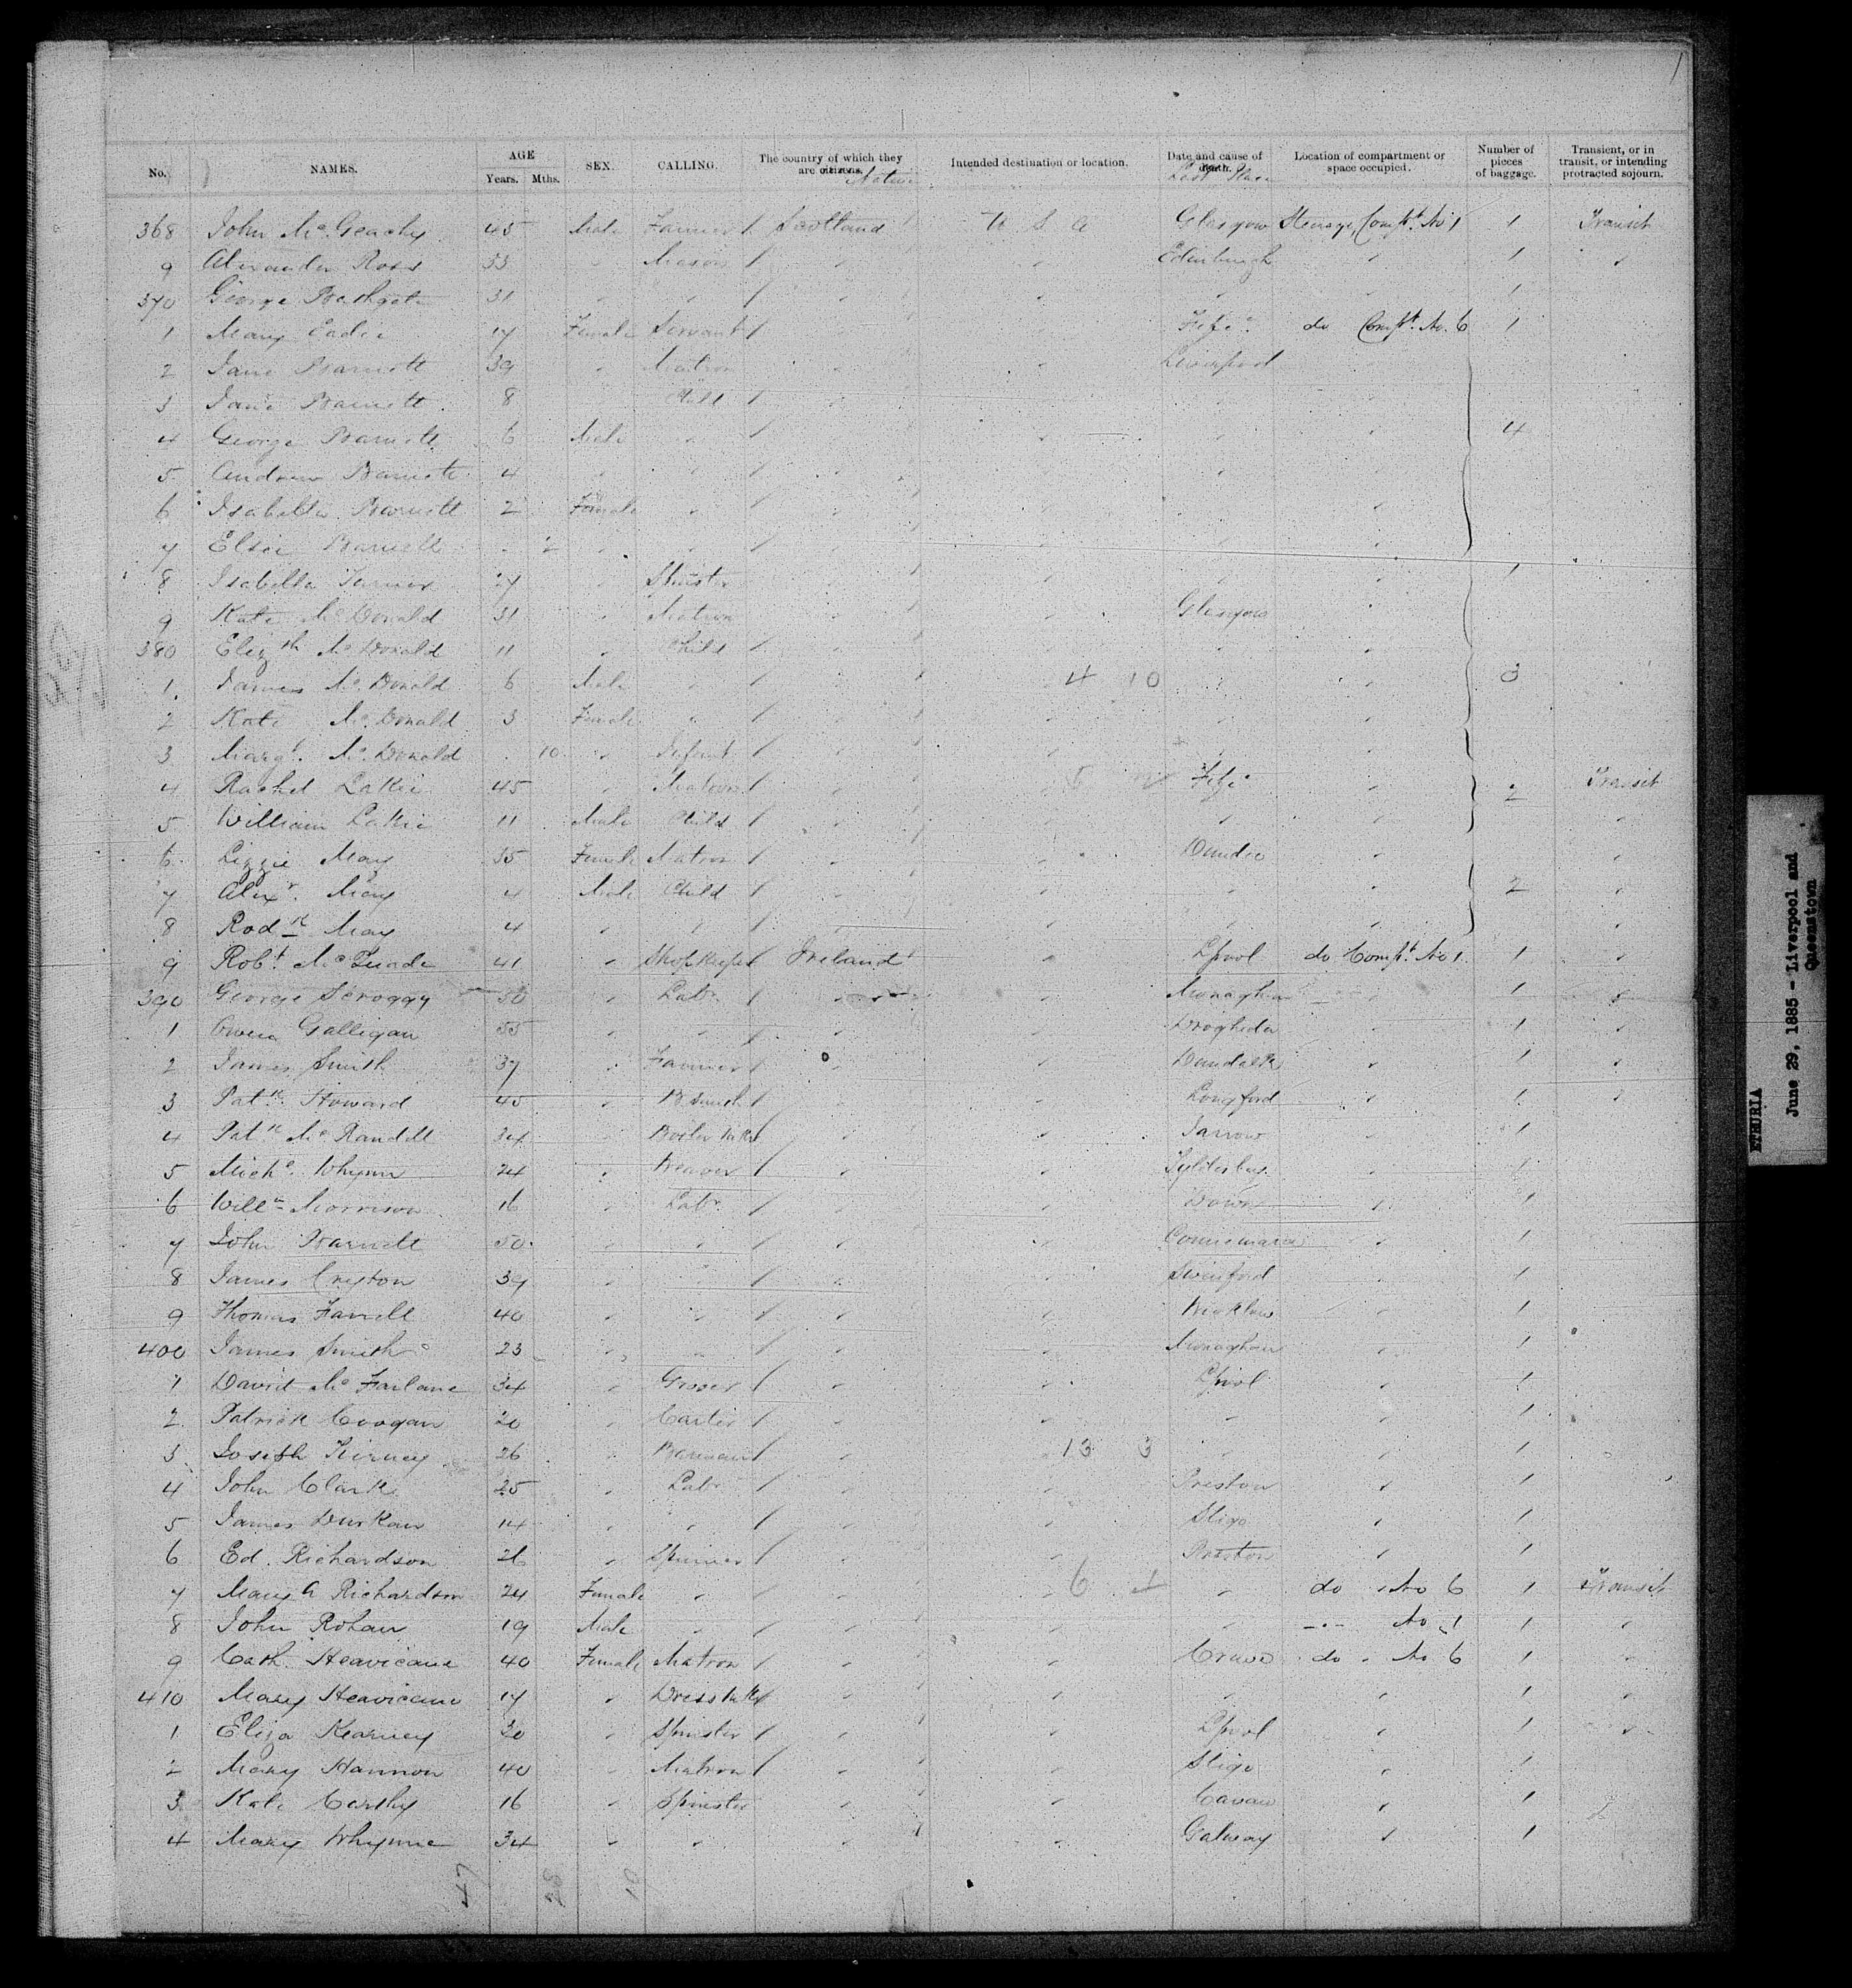 No. NAMES. AGE Years. Mths. SEX. CALLING. The country of which they are citizens. Native Intended destination or location. Date and cause of death. Last Place Location of compartment or space occupied. Number of pieces of baggage. Transient, or in transit, or intending protracted sojourn.
368 John McGeachy 45 Male Farmer / Scotland U S A Glasgow Steerage, Compt. No 1 1 Transit
9 Alexander Ross 33 " Mason / " " Edinburgh " 1 "
370 George Bathgate 31 " " / " " " " 1
1 Mary Eadie 17 Female Servant / " " Fife do Compt. No. 6 1
2 Jane Barnett 39 " Matron " " Liverpool
3 Jane Barnett 8 Child / " " " "
4 George Barnett 6 Male " / " " " " 4
5 Andrew Barnett 4 " " / " " " "
6 Isabella Barnett 2 Female " " " "
7 Elsie Barnett 2 " " / " " "
8 Isabella Turner 27 " Spinster " " " " 1
9 Kate McDonald 31 " Matron " " Glasgow "
380 Elizth McDonald 11 " Child / " " "
1 James McDonald 6 Male " / " 4 10 " " 3
2 Kate McDonald 3 Female " / " " " "
3 Margt. McDonald 10 " Infant / " " "
4 Rachel Lakie 45 " Matron / " 5 Fife " 2 Transit
5 William Lakie 11 Male Child / " " " " "
6 Lizzie May 35 Female Matron / " " Dundee " "
7 Alexr. May 4 Male Child / " " " " 2 "
8 Rodk May 4 " " / " " " " "
9 Robt. McQuade 41 " Shopkeeper / Ireland " Lpool do Compt. No 1 1 "
390 George Scroggy 50 Labr. / " Monaghan 1 "
1 Owen Galligan 55 " " / " " Drogheda " 1 "
2 James Smith 37 " Farmer / " " Dundalk " 1 "
3 Patk. Howard 45 " B Smith / " " Longford " 1 "
4 Patk McRandell 34 " Boiler Mkr / " " Jarrow " 1
5 Michl. Whynn 24 " Weaver / " " " 1
6 Willm Morrison 16 " Labr. / " " Down " 1
7 John Barnett 50 " " / " " Connemara " 1
8 James 39 " " / " " Swinford " 1
9 Thomas Farrell 40 " " / " " Wicklow " 1
400 James Smith 23 " " / " " Monaghan " 1
1 David McFarlane 34 " Grocer / " " Lpool " 1
2 Patrick Coogan 20 " Carter / " " " " 1
3 Joseph Kirney 26 " Barman / " 13 3 " " 1
4 John Clark 25 " Labr / " " Preston " 1
5 James Durkan 14 " " / " " Sligo " 1
6 Ed. Richardson 26 " Spinner / " " Preston " 1
7 Mary A Richardson 24 Female " / " 6 1 " do " No 6 1 Transit
8 John Rohan 19 Male " / " " " " No 1 1 "
9 Cath. Heavicane 40 Female Matron / " " Crewe do " No 6 1 "
410 Mary Heavicane 17 " Dress Mkr / " " " " 1 "
1 Eliza Kearney 30 " Spinster / " " Lpool " 1 "
2 Mary Hannon 40 " Matron / " " Sligo " 1
3 Kate Carthy 16 " Spinster " " Cavan " 1
4 Mary Whynne 34 " " " " Galway " 1
47 28 10
ETRURIA
June 29, 1885 - Liverpool and
Queenstown